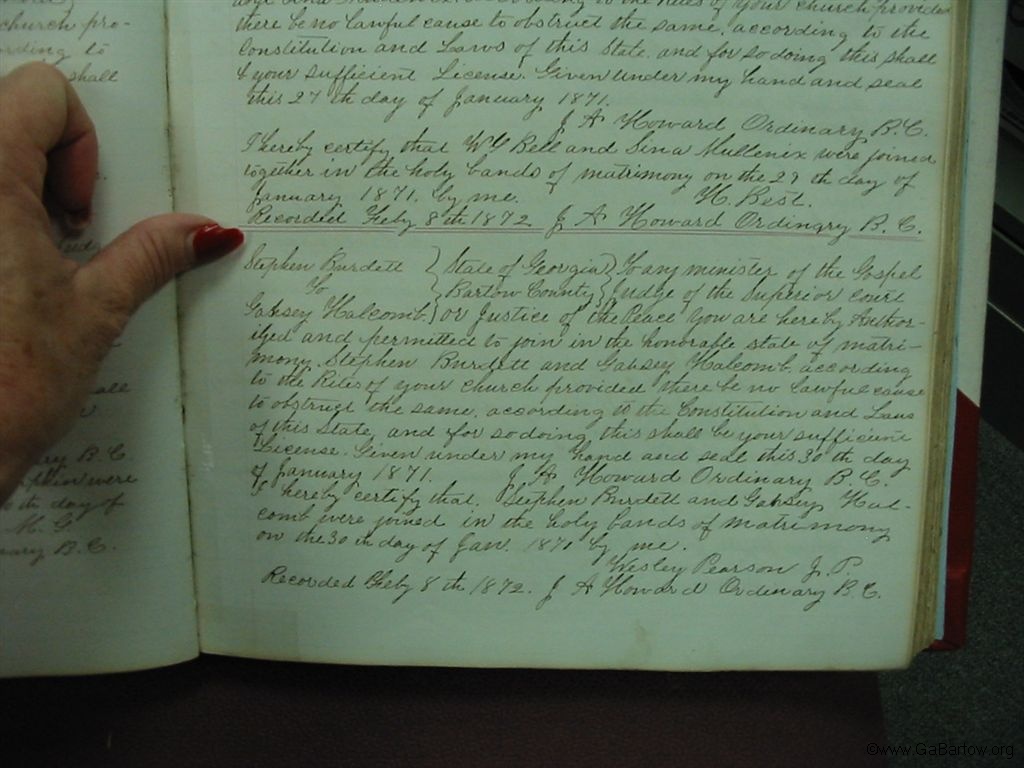 church pro-
according to
shall
according to the rules of your church provided
there be no lawful cause to obstruct the same, according to the
Constitution and Laws of this State. and for so doing this shall
be your sufficient License. Given under my hand and seal
this 27th day of January 1871.
J A Howard Ordinary B. C.
I hereby certify that Wm Bell and Sina Mullenix were joined
together in the holy bands of matrimony on the 29th day of
January 1871. by me. H. Best.
Recorded Feby 8th 1872 J A Howard Ordinary B. C.
Stephen Burdett } State of Georgia } To any minister of the Gospel
To } Bartow County } Judge of the Superior court
Gaksey Halcomb. } or Justice of the Peace you are hereby Author-
ized and permitted to join in the honorable state of matri-
mony. Stephen Burdett and Gaksey Halcomb. according
to the Rites of your church provided there be no lawful cause
to obstruct the same. according to the Constitution and Laws
of this State, and for so doing this shall be your sufficient
License. Given under my hand and seal this 30th day
of January 1871. J A Howard Ordinary B. C.
I hereby certify that. Stephen Burdett and Gaksey Hal-
comb were joined in the holy bands of matrimony
on the 30th day of Jan. 1871 by me.
Wesley Pearson J. P.
Recorded Feby 8th 1872. J A Howard Ordinary B. C.
B. C.
were
day of
M. G.
B. C.
©www.GaBartow.org